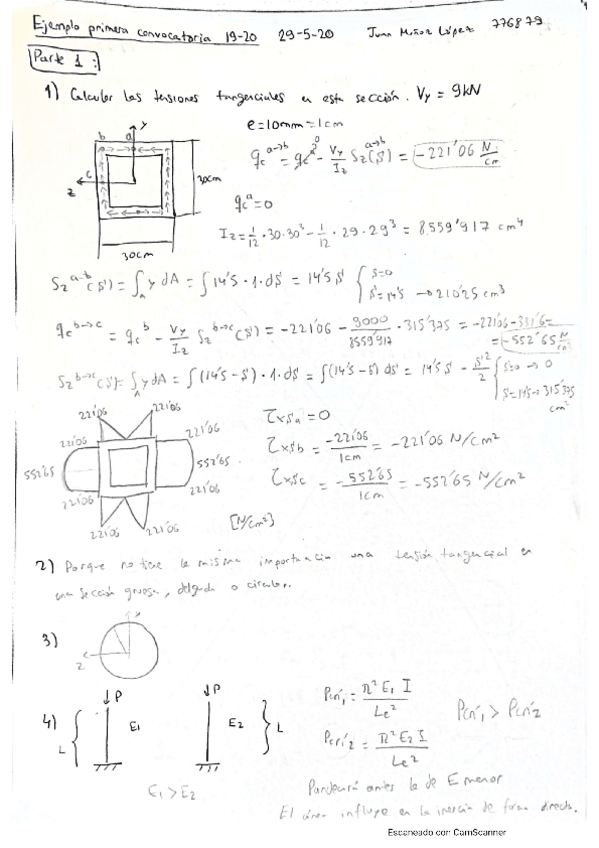 Ejemplo primera convocatoria 19-20 29-5-20 Juan Muñoz López 776879
Parte 1:
1) Calcular las tensiones tangenciales en esta sección. Vy = 9kN
e=10mm=1cm
b a y
c z
30cm
30cm
qc a→b = qc a 0 - Vy/Iz Sz a→b (S) = -221'06 N/cm
qc a = 0
Iz = 1/12 · 30·30³ - 1/12 · 29·29³ = 8559'917 cm⁴
Sz a-b (S) = ∫A y dA = ∫14'5 · 1·dS = 14'5 S { S=0 S=14'5 → 210'25 cm³
qc b→c = qc b - Vy/Iz Sz b→c (S) = -221'06 - 9000/8559'917 · 315'375 = -221'06-331'6= = -552'65 N/cm
Sz b→c (S) = ∫A y dA = ∫(14'5 - S) · 1·dS = ∫(14'5 - S) dS = 14'5 S - S²/2 { S=0 → 0 S=14'5→315'375 cm³
221'06 221'06
221'06 221'06
552'65 552'65
221'06 221'06
221'06 221'06
[N/cm²]
τxs a = 0
τxs b = -221'06/1cm = -221'06 N/cm²
τxs c = -552'65/1cm = -552'65 N/cm²
2) Porque no tiene la misma importancia una tensión tangencial en
una sección gruesa, delgada o circular.
3)
z
4) L { ↓P E1 ↓P E2 } L
E1 > E2
Pcrí1 = π² E1 I / Le²
Pcrí2 = π² E2 I / Le²
Pcrí1 > Pcrí2
Pandeará antes la de E menor
El área influye en la inercia de forma directa.
Escaneado con CamScanner